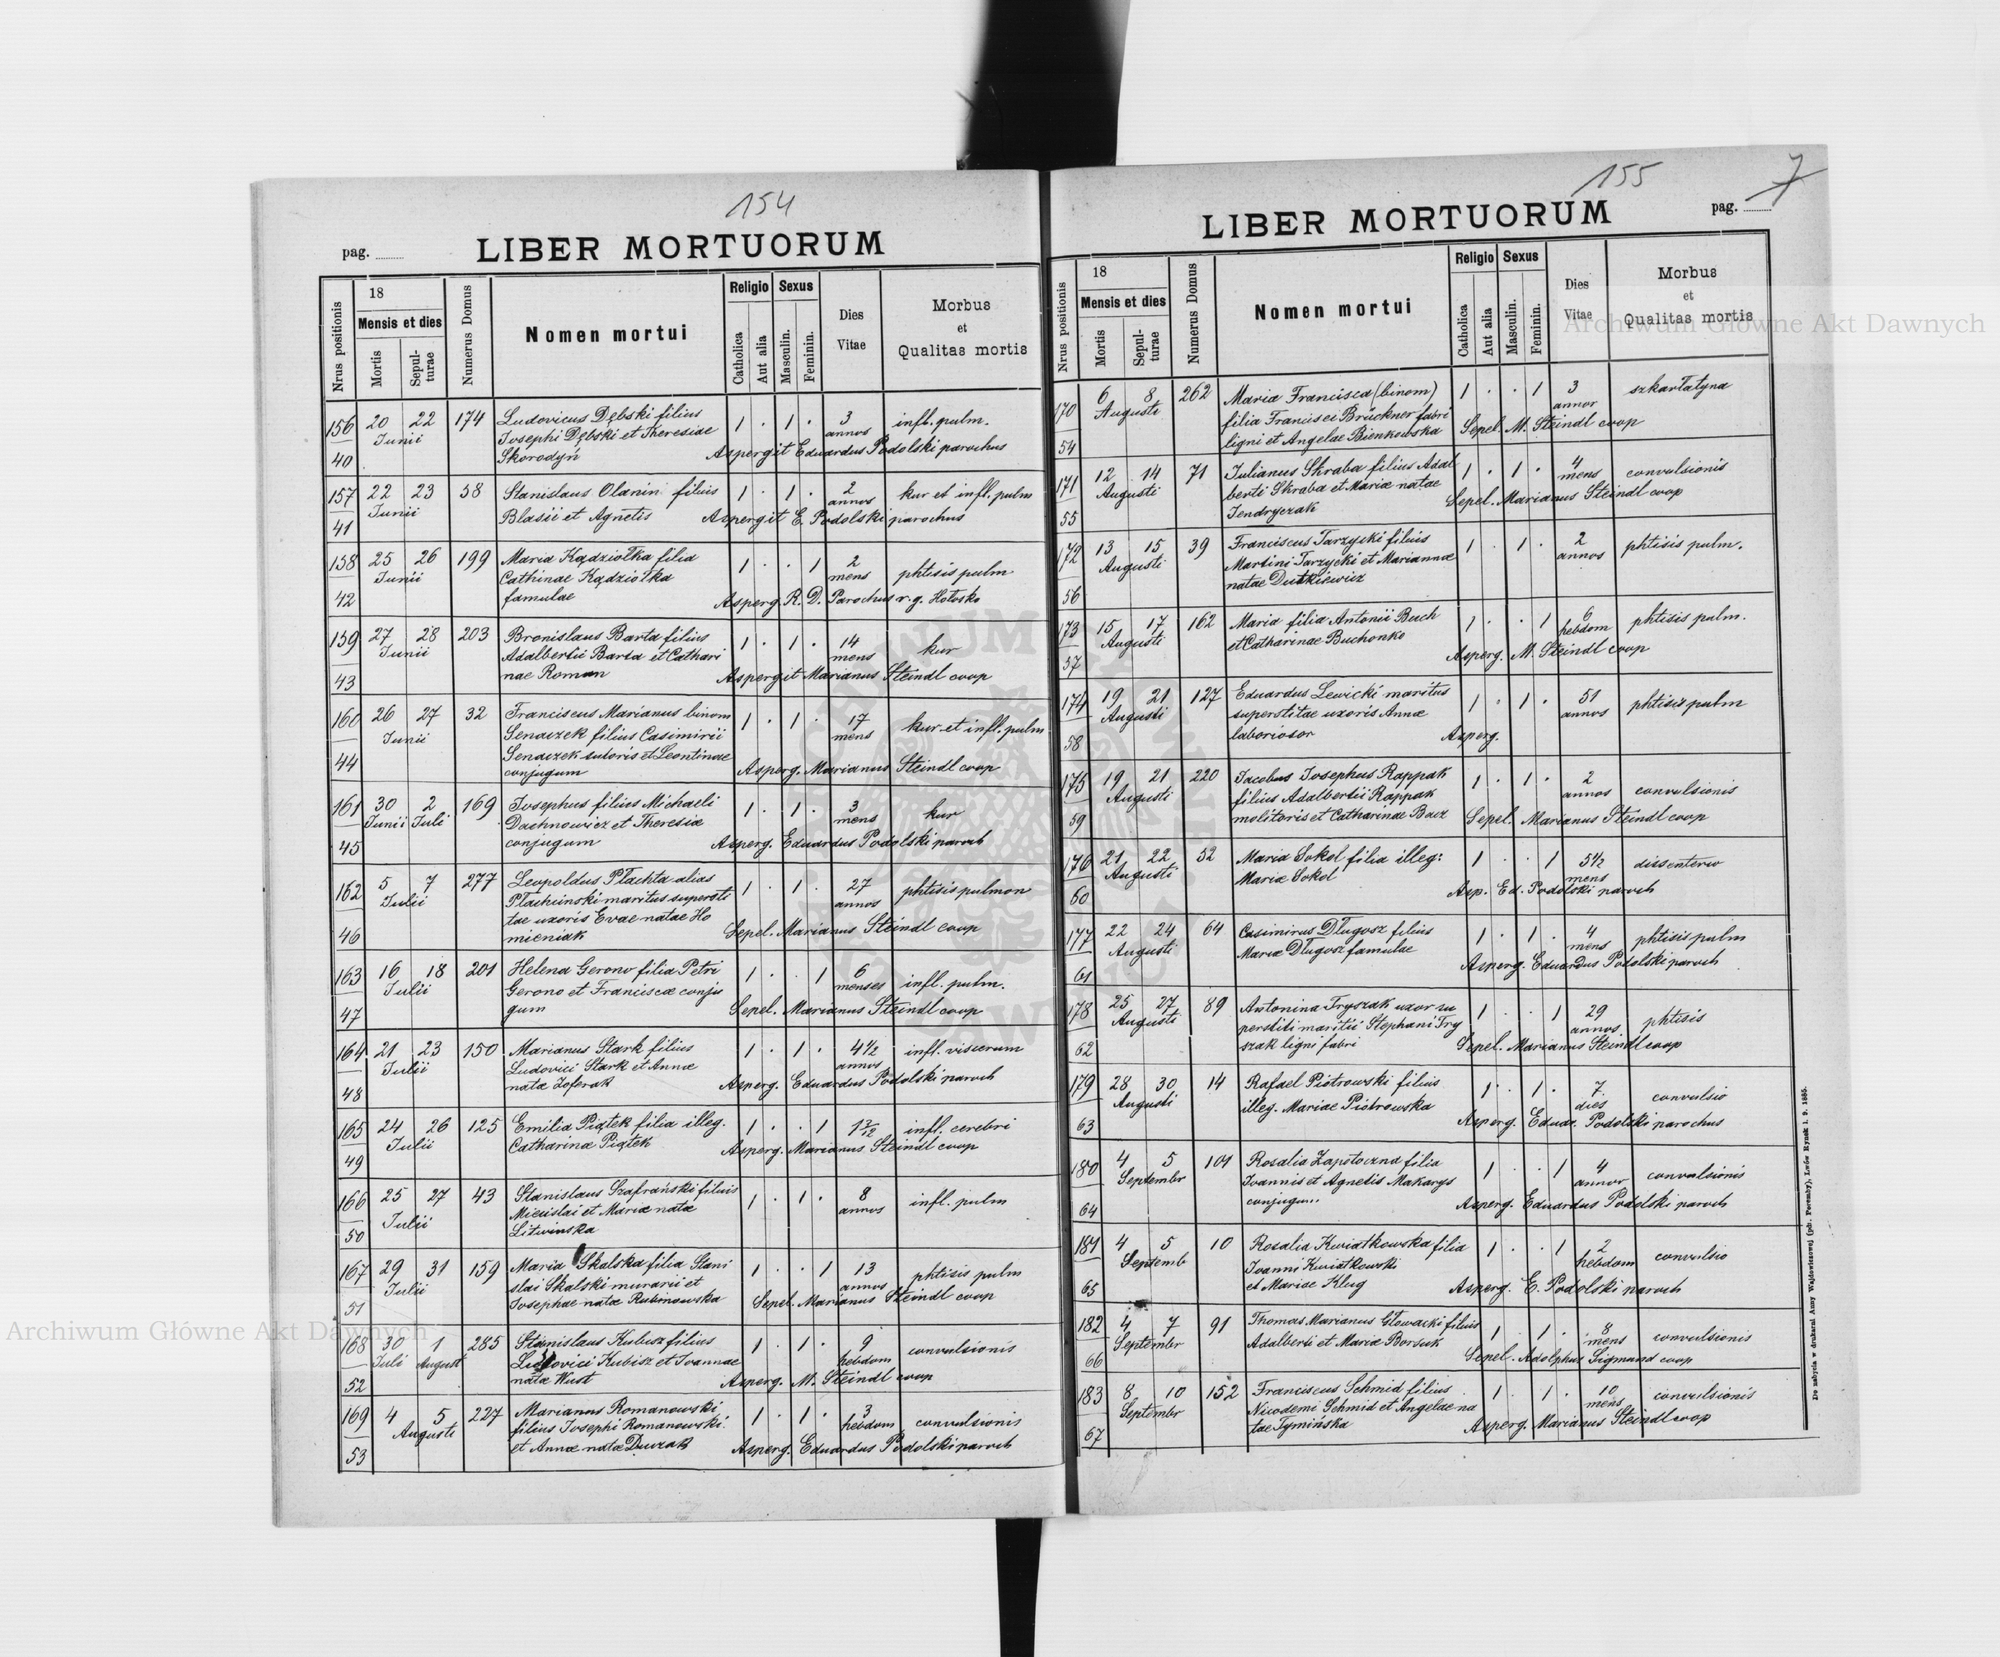 154
pag. ........
LIBER MORTUORUM
Nrus positionis
18
Mensis et dies
Mortis
Sepul-
turae
Numerus Domus
Nomen mortui
Religio
Catholica
Aut alia
Sexus
Masculin.
Feminin.
Dies
Vitae
Morbus
et
Qualitas mortis
156 20 22 174 Ludovicus Dębski filius 1 . 1 . 3 infl. pulm.
Junii Josephi Dębski et Theresiae annos
40 Skorodyń Aspergit Eduardus Podolski parochus
157 22 23 58 Stanislaus Olanin filius 1 . 1 . 2 kur et infl. pulm
Junii annos
41 Blasii et Agnetis Aspergit E. Podolski parochus
158 25 26 199 Maria Kądziołka filia 1 . . 1 2 phtisis pulm
Junii Cathinae Kądziołka mens
42 famulae Asperg. R. D. Parochus r. g. Hołosko
159 27 28 203 Bronislaus Barta filius 1 . 1 . 14 kur
Junii Adalbertii Barta et Cathari mens
43 nae Roman Aspergit Marianus Steindl coop
160 26 27 32 Franciscus Marianus binom 1 . 1 . 17 kur et infl. pulm
Junii Senaszek filius Casimirii mens
44 Senaszek sutoris et Leontinae
conjugum Asperg. Marianus Steindl coop
161 30 2 169 Josephus filius Michaeli 1 . 1 . 3 kur
Junii Juli Dachnowicz et Theresia mens
45 conjugum Asperg. Eduardus Podolski paroch
162 5 7 277 Leopoldus Płachta alias 1 . 1 . 27 phtisis pulmon
Julii Płachinski maritus supersti annos
tae uxoris Evae natae Ho
46 mieniak Sepel. Marianus Steindl coop
163 16 18 201 Helena Gerono filia Petri 1 . . 1 6 infl. pulm.
Julii Gerono et Franciscae conju menses
47 gum Sepel. Marianus Steindl coop
164 21 23 150 Marianus Stark filius 1 . 1 . 4½ infl. viscerum
Julii Ludovici Stark et Annae annos
48 nata Zoferak Asperg. Eduardus Podolski paroch
165 24 26 125 Emilia Piątek filia illeg. 1 . . 1 infl. cerebri
Julii
49 Catharina Piątek Asperg. Marianus Steindl coop
166 25 27 43 Stanislaus Szafrański filius 1 . 1 . 8 infl. pulm
Julii Miecislai et Maria nata annos
50 Litwinska
167 29 31 159 Maria Skalska filia Stani 1 . . 1 13 phtisis pulm
Julii slai Skalski murarii et annos
51 Josephae nata Rubinowska Sepel. Marianus Steindl coop
168 30 1 285 Stanislaus Kubisz filius 1 . 1 . 9 convulsionis
Juli August Ludovici Kubisz et Joannae hebdom
52 nata Wust Asperg. M. Steindl coop
169 4 5 227 Marianus Romanowski 1 . 1 . 3 convulsionis
Augusti filius Josephi Romanowski hebdom
53 et Anna nata Duzak Asperg. Eduardus Podolski paroch
155
7
pag. ........
LIBER MORTUORUM
Nrus positionis
18
Mensis et dies
Mortis
Sepul-
turae
Numerus Domus
Nomen mortui
Religio
Catholica
Aut alia
Sexus
Masculin.
Feminin.
Dies
Vitae
Morbus
et
Qualitas mortis
170 6 8 262 Maria Francisca (binom) 1 . . 1 3 szkarlatyna
Augusti filia Francisci Brückner fabri annor
54 ligni et Angelae Bienkowska Sepel M. Steindl coop
171 12 14 71 Julianus Skraba filius Adal 1 . 1 . 4 convulsionis
Augusti berti Skraba et Maria natae mens
55 Jendryczak Sepel. Marianus Steindl coop
172 13 15 39 Franciscus Tarzycki filius 1 . 1 . 2 phtisis pulm.
Augusti Martini Tarzycki et Mariannae annos
56 natae Dutkiewicz
173 15 17 162 Maria filia Antonii Buch 1 . . 1 6 phtisis pulm.
Augusti et Catharinae Buchonko hebdom
57 Asperg. M. Steindl coop
174 19 21 127 Eduardus Lewicki maritus 1 . 1 . 51 phtisis pulm
Augusti superstitae uxoris Annae annos
58 laboriosor Asperg.
175 19 21 220 Jacobus Josephus Rappak 1 . 1 . 2 convulsionis
Augusti filius Adalbertii Rappak annos
59 molitoris et Catharinae Bacz Sepel. Marianus Steindl coop
176 21 22 52 Maria Sokol filia illeg: 1 . . 1 5½ dissenterio
Augusti Maria Sokol mens
60 Asp. Ed. Podolski paroch
177 22 24 64 Casimirus Długosz filius 1 . 1 . 4 phtisis pulm
Augusti Maria Długosz famulae mens
61 Asperg. Eduardus Podolski paroch
178 25 27 89 Antonina Tryszak uxor su 1 . . 1 29 phtisis
Augusti perstiti maritii Stephani Try annos
62 szak ligni fabri Sepel. Marianus Steindl coop
179 28 30 14 Rafael Piotrowski filius 1 . 1 . 7 convulsio
Augusti illeg. Mariae Piotrowska dies
63 Asperg. Eduar. Podolski parochus
180 4 5 101 Rosalia Zapotoczna filia 1 . . 1 4 convulsionis
Septembr Joannis et Agnetis Makarys annor
64 conjugum Asperg. Eduardus Podolski paroch
181 4 5 10 Rosalia Kwiatkowska filia 1 . . 1 2 convulsio
Septemb Joanni Kwiatkowski hebdom
65 et Mariae Klug Asperg. E. Podolski paroch
182 4 7 91 Thomas Marianus Głowacki filius 1 . 1 . 8 convulsionis
September Adalberti et Maria Borsuk mens
66 Sepel. Adolphus Sigmund coop
183 8 10 152 Franciscus Schmid filius 1 . 1 . 10 convulsionis
Septembr Nicodemi Schmid et Angelae na mens
67 tae Tymińska Asperg. Marianus Steindl coop
Do nabycia w drukarni Anny Wajdowiczowej (ph. Poremby), Lwów Rynek l. 9. 1885.
Archiwum Główne Akt Dawnych
Archiwum Główne Akt Dawnych